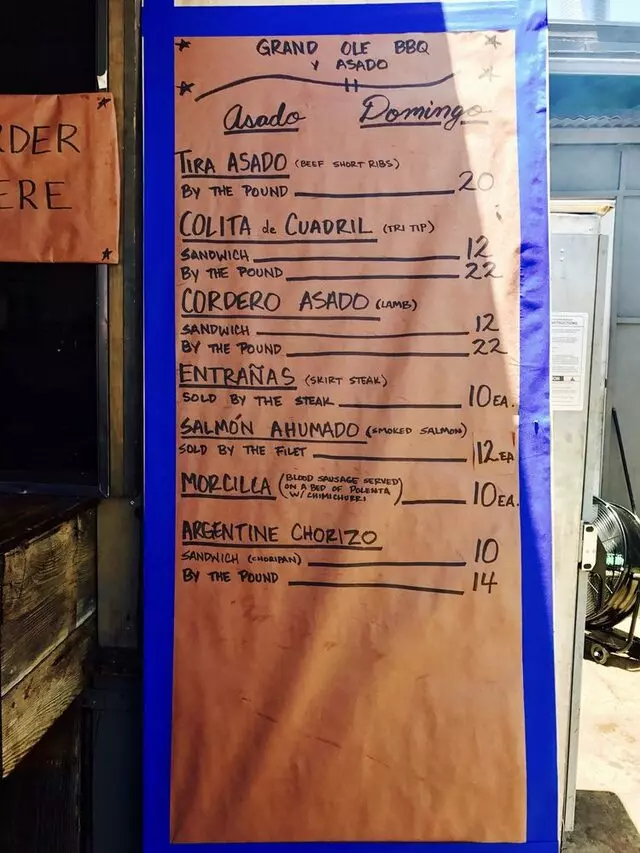 GRAND OLE BBQ
Y ASADO
Asado Domingo
RDER
ERE
TIRA ASADO (BEEF SHORT RIBS)
BY THE POUND 20
COLITA de CUADRIL (TRI TIP)
SANDWICH 12
BY THE POUND 22
CORDERO ASADO (LAMB)
SANDWICH 12
BY THE POUND 22
ENTRAÑAS (SKIRT STEAK)
SOLD BY THE STEAK 10 EA.
SALMÓN AHUMADO (SMOKED SALMON)
SOLD BY THE FILET 12 EA
MORCILLA (BLOOD SAUSAGE SERVED
ON A BED OF POLENTA
W/ CHIMICHURRI) 10 EA.
ARGENTINE CHORIZO
SANDWICH (CHORIPAN) 10
BY THE POUND 14